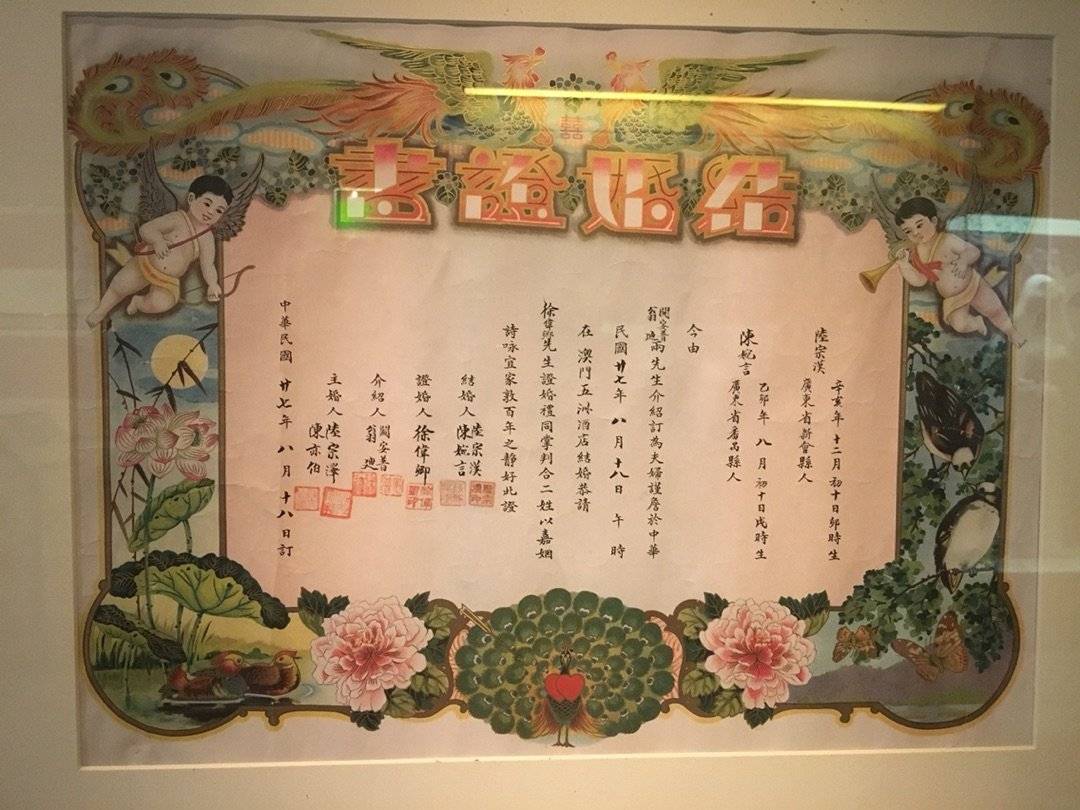 結婚證書
囍
陸宗漢 辛亥年 十二月 初十日卯時生
廣東省新會縣人
陳婉言 乙卯年 八月 初十日戌時生
廣東省番禺縣人
今由
關安普
翁廸
兩先生介紹訂為夫婦謹詹於中華
民國廿七年 八月十八日 午時
在澳門五洲酒店結婚恭請
徐偉卿先生證婚禮同掌判合二姓以嘉姻
詩詠宜家敦百年之靜好此證
結婚人 陸宗漢
陳婉言
證婚人 徐偉卿
介紹人 關安普
翁廸
主婚人 陸宗澤
陳亦伯
中華民國 廿七年 八月十八日訂